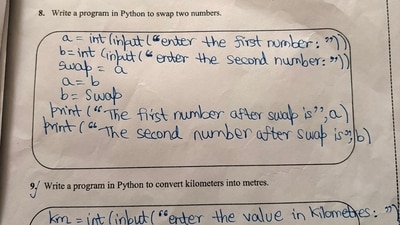 8. Write a program in Python to swap two numbers.
a = int(input("enter the first number: "))
b = int(input("enter the second number: "))
swap = a
a = b
b = swap
Print ("The first number after swap is", a)
Print ("The second number after swap is", b)
9. Write a program in Python to convert kilometers into metres.
km = int(input("enter the value in kilometres: ")